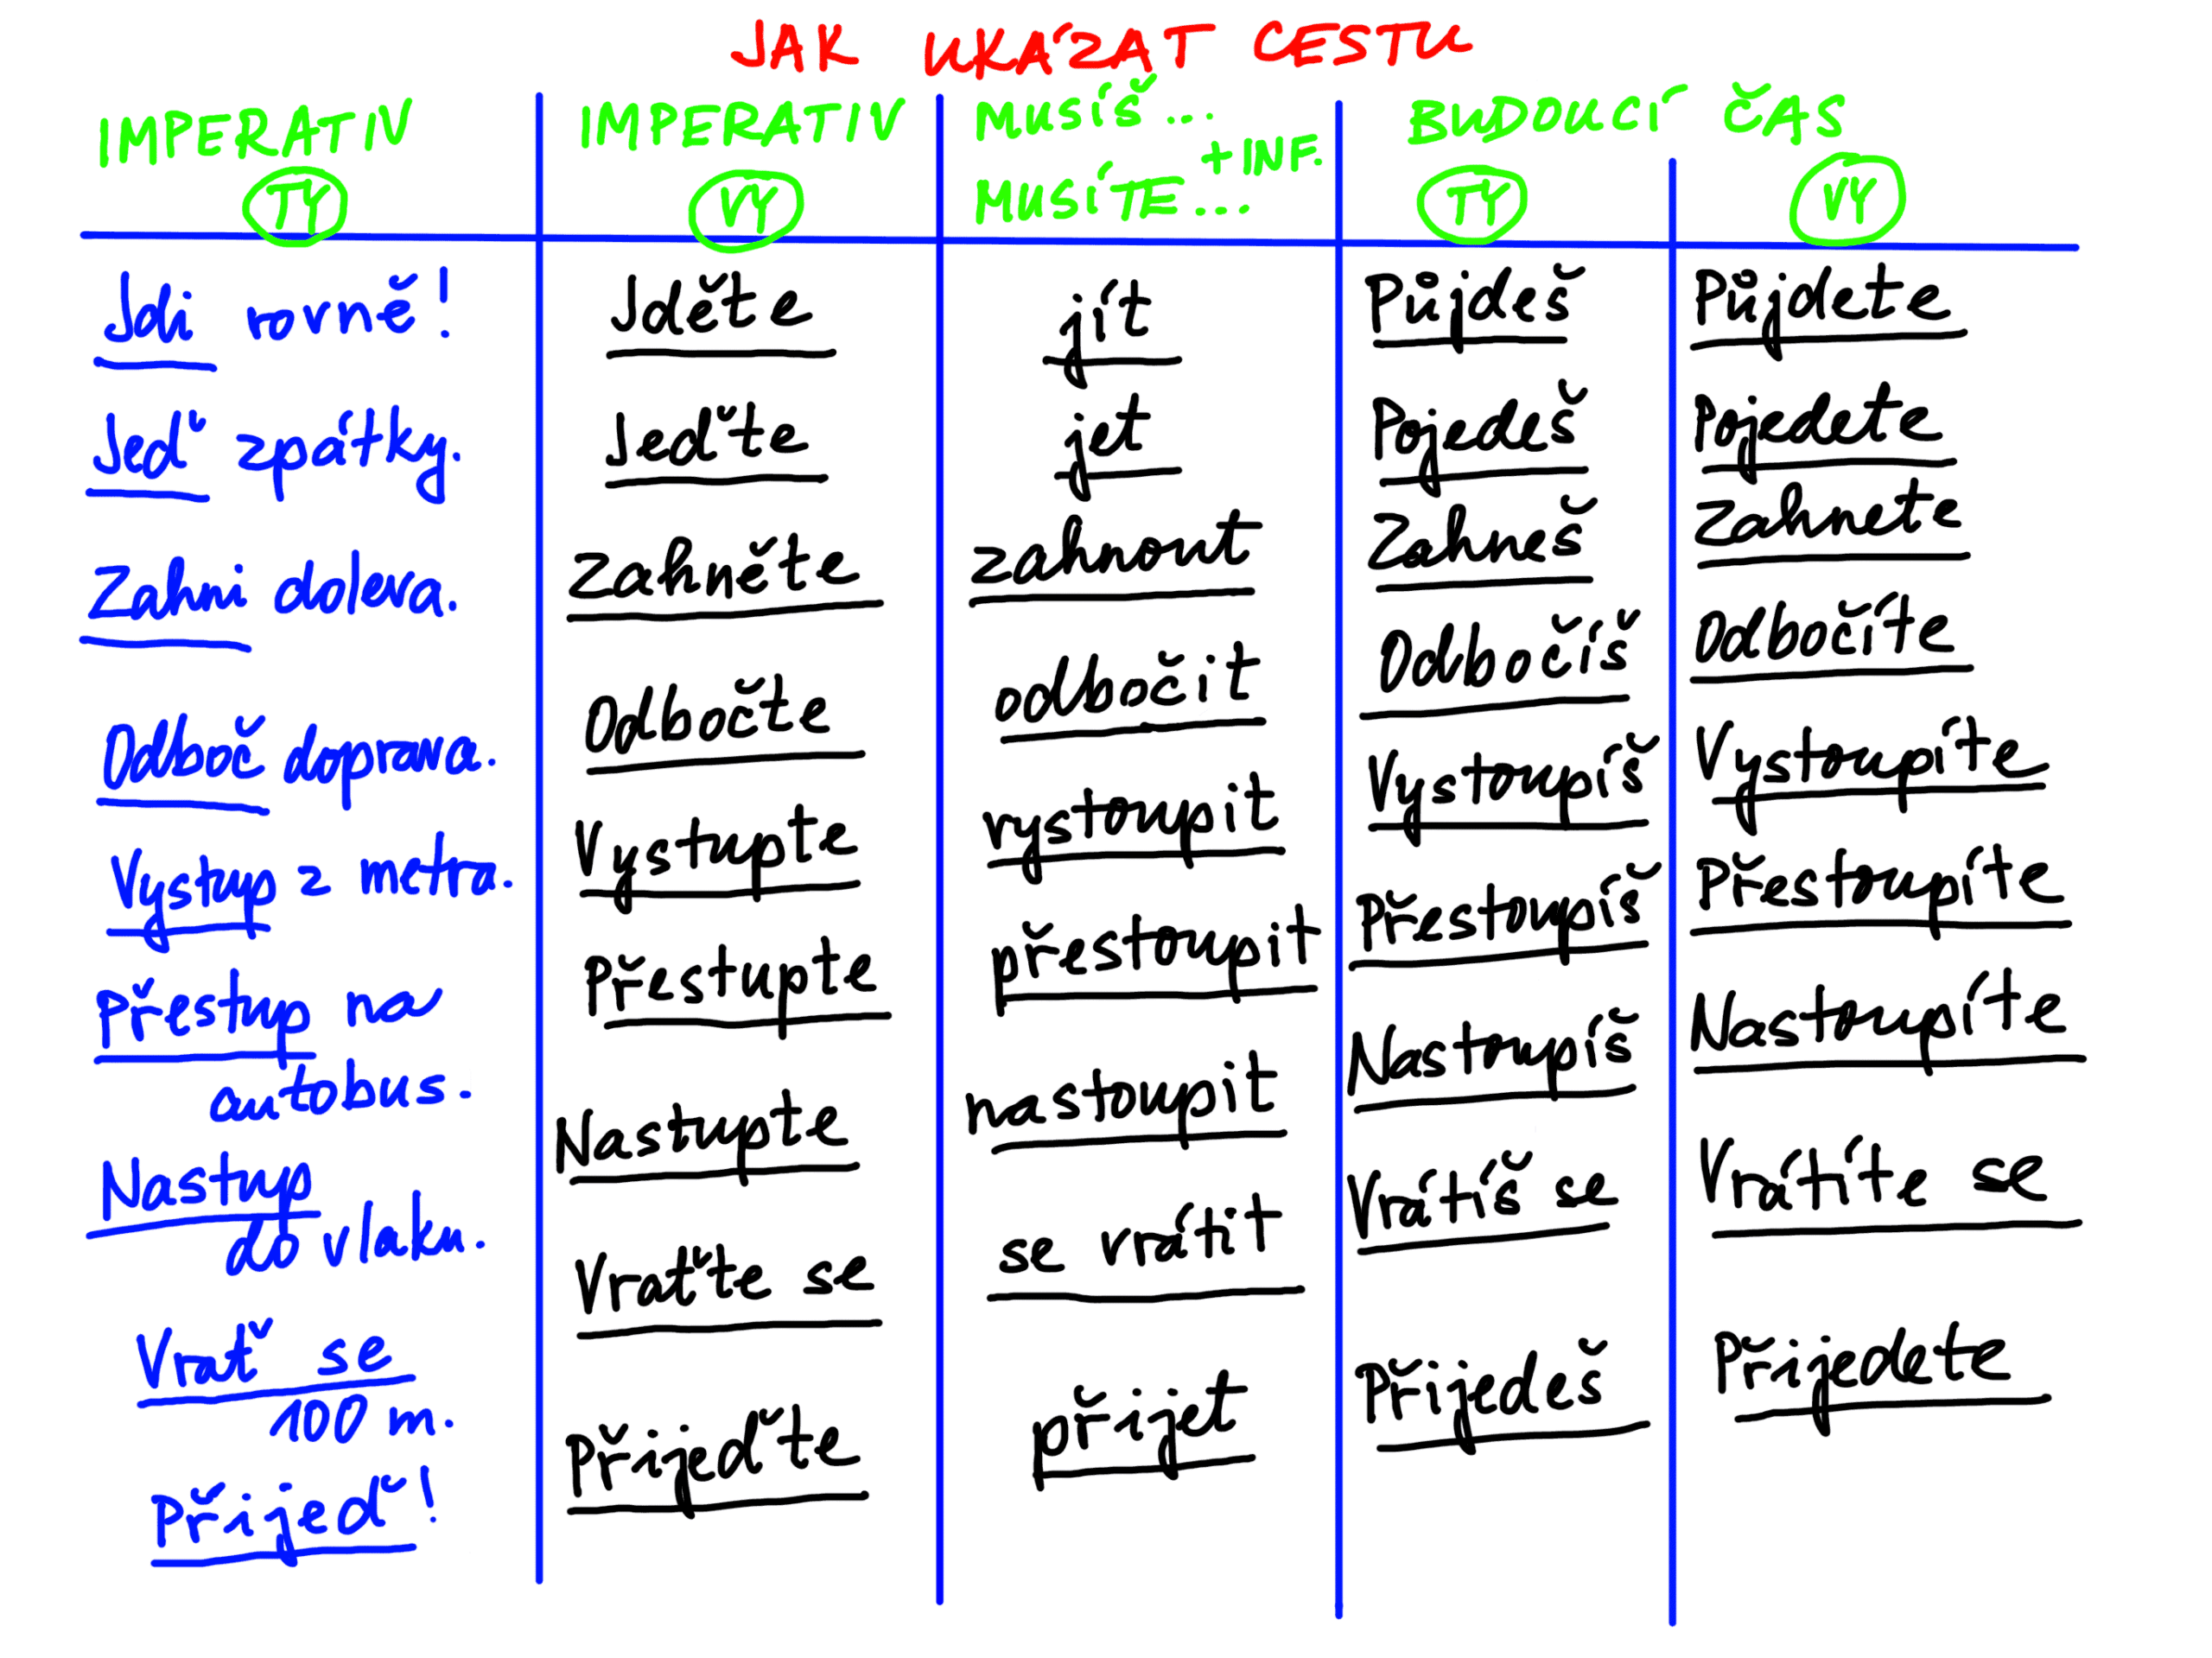 JAK UKÁZAT CESTU
IMPERATIV TY
IMPERATIV VY
MUSÍŠ...
MUSÍTE... + INF.
BUDOUCÍ ČAS
TY VY
Jdi rovně! Jděte jít Půjdeš Půjdete
Jeď zpátky. Jeďte jet Pojedeš Pojedete
Zahni doleva. Zahněte zahnout Zahneš Zahnete
Odboč doprava. Odbočte odbočit Odbočíš Odbočíte
Vystup z metra. Vystupte vystoupit Vystoupíš Vystoupíte
Přestup na Přestupte přestoupit Přestoupíš Přestoupíte
autobus.
Nastup Nastupte nastoupit Nastoupíš Nastoupíte
do vlaku.
Vrať se Vraťte se se vrátit Vrátíš se Vrátíte se
100 m.
Přijeď! Přijeďte přijet Přijedeš Přijedete